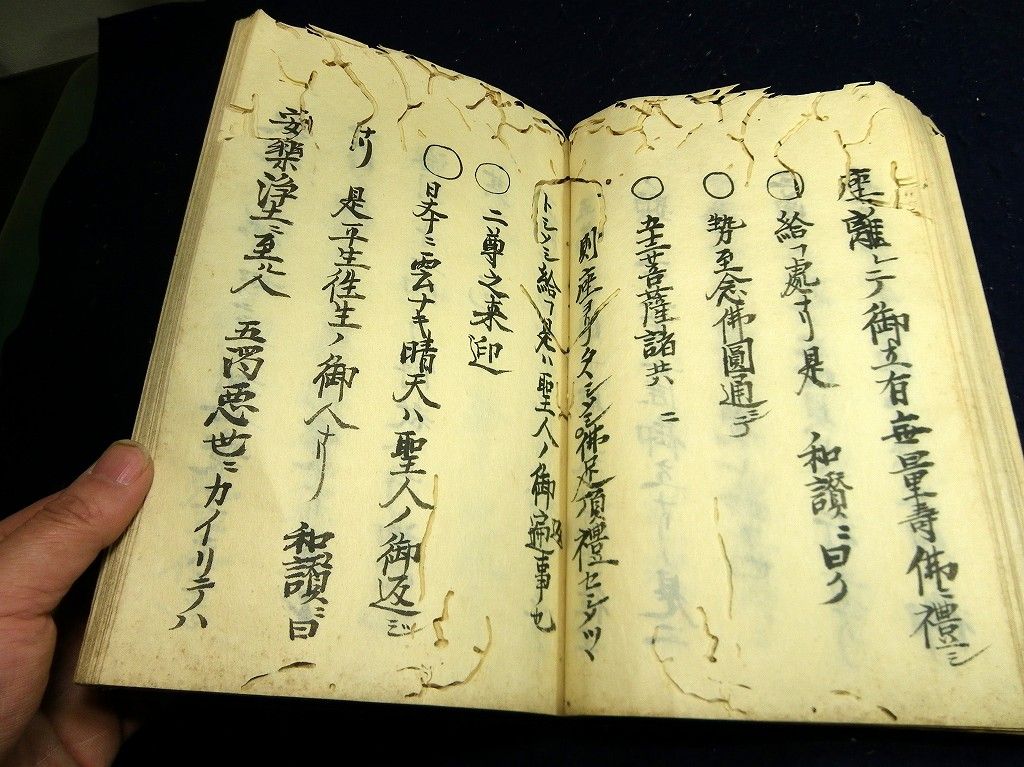 座離レテ御立有無量壽佛ニ禮シ
給フ處ナリ是 和讃ニ曰ク
勢至念佛圓通シテ
五十二菩薩諸共ニ
則座ヨリタ 佛足頂禮セシメツヽ
給フ是ハ聖人ノ御返事也
二尊之来迎
日本ニ雲ナキ晴天ハ聖人ノ御返
ナリ 是平生往生ノ御人ナリ 和讃ニ曰
安樂浄土ニ至ル人 五濁悪世ニカイリテハ